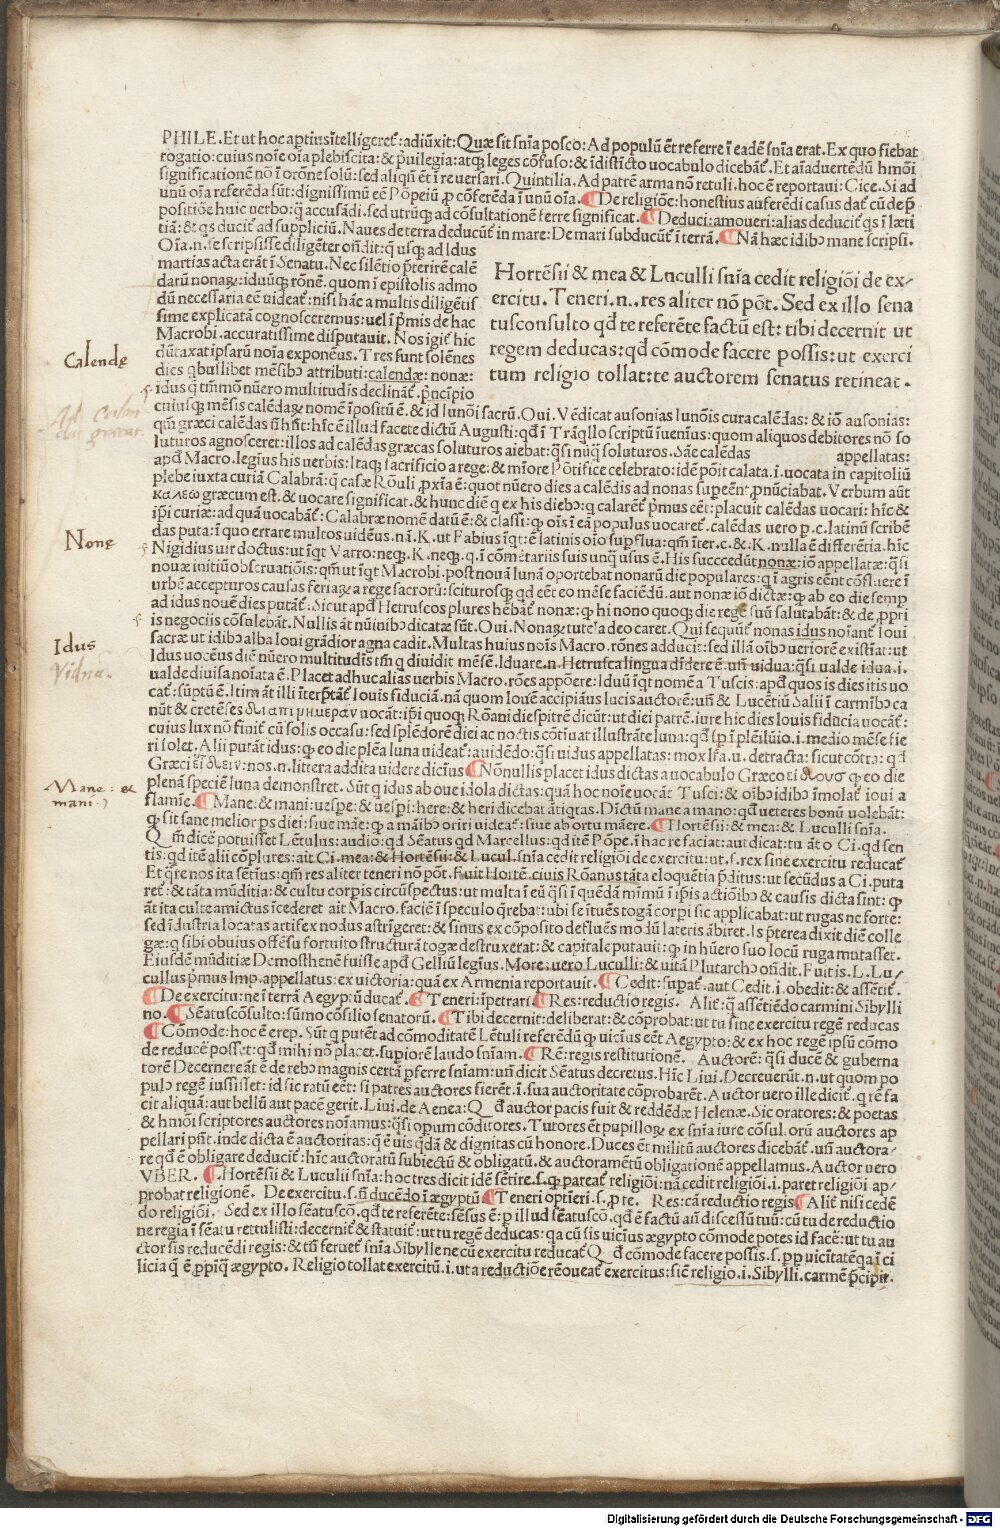 PHILE. Et ut hoc aptius ītelligeret᷑: adiūxit: Quæ sit snīa posco: Ad populū ēt referre ī eadē snīa erat. Ex quo fiebat
rogatio: cuius noīe oīa plebiscita: & p̄uilegia: atqꝫ leges cōfuso: & īdistīcto uocabulo dicebāt᷑. Et aīaduertēdū hmōi
significationē nō ī orōne solū: sed aliqñ ēt ī re uersari. Quintilia. Ad patrē arma nō retuli. hoc ē reportaui: Cice. Si ad
unū oīa referēda sūt: dignissimū eē Pōpeiū ꝓ cōferēda ī unū oīa. ¶De religiōe: honestius auferēdi casus dat᷑ cū de p̄
positiōe huic uerbo: q̄ accusādi. sed utrūqꝫ ad cōsultationē ferre significat. ¶Deduci: amoueri: alias deducit᷑ qs ī læti
tiā: & qs ducit᷑ ad suppliciū. Naues de terra deducūt᷑ in mare: De mari subducūt᷑ ī terrā. ¶Nā hæc idibꝰ mane scripsi.
Oīa. n. se scripsisse diligēter oñdit: q̄ usqꝫ ad Idus
martias acta erāt ī Senatu. Nec silētio p̄terirē calē
darū nonaꝝ: iduūqꝫ rōnē. quom ī epistolis admo
dū necessaria eē uideat᷑: nisi hāc a multis diligētis
sime explicatā cognosceremus: uel ī p̄mis de hac
Macrobi. accuratissime disputauit. Nos igit᷑ hic
dūtaxat ipsarū noīa exponēus. Tres sunt solēnes
dies qbuslibet mēsibꝰ attributi: calendæ: nonæ:
idus q̄ tm̄mō nūero multitudīs declināt᷑. p̄ncipio
Hortēsii & mea & Luculli snīa cedit religiōi de ex-
ercitu. Teneri. n. res aliter nō pōt. Sed ex illo sena
tusconsulto qd̄ te referēte factū est: tibi decernit ut
regem deducas: qd̄ cōmode facere possis: ut exerci
tum religio tollat: te auctorem senatus retineat.
Calendę
cuiusqꝫ mēsis calēdaꝝ nomē īpositū ē. & id Iunōi sacrū. Oui. Vēdicat ausonias Iunōis cura calēdas: & iō ausonias:
qm̄ græci calēdas ñ hn̄t: hīc ē illud facete dictū Augusti: qd̄ ī Trāqllo scriptū īuenius: quom aliquos debitores nō so
luturos agnosceret: illos ad calēdas græcas soluturos aiebat: q̄si nūq̄ soluturos. Sāe calēdas appellatas:
apd̄ Macro. legīus his uerbis: Itaqꝫ sacrificio a rege: & mīore Pōtifice celebrato: idē pōit calata. i. uocata in capitoliū
plebe iuxta curiā Calabrā: q̄ casæ Rōuli ꝓxīa ē: quot nūero dies a calēdis ad nonas supeēn᷑ ꝓnūciabat. Verbum aūt
καλεω græcum est. & uocare significat. & hunc diē q ex his diebꝰ: q calarēt᷑ p̄mus eēt: placuit calēdas uocari: hīc &
ip̄i curiæ: ad quā uocabāt᷑: Calabræ nomē datū ē: & classi: qꝫ oīs ī eā populus uocaret᷑. calēdas uero p. c. latinū scribē
das puta: ī quo errare multos uidēus. nā. K. ut Fabius īqt: ē latinis oīo supflua: qm̄ īter. c. & K. nulla ē differētia. hīc
Nonę
Nigidius uir doctus: ut īqt Varro: neqꝫ. K. neqꝫ. q. ī cōmētariis suis unq̄ usus ē. His succcedūt nonæ: iō appellatæ: q̄si
nouæ initiū obseruatiōis: qm̄ ut īqt Macrobi. post nouā lunā oportebat nonarū die populares: q ī agris eēnt cōfluere ī
urbē accepturos causas feriaꝝ a rege sacrorū: scituros qꝫ qd eēt eo mēse faciēdū. aut nonæ iō dictæ: qꝫ ab eo die semp
ad idus nouē dies putāt᷑. Sicut apd̄ Hetruscos plures hēbāt᷑ nonæ: qꝫ hi nono quoqꝫ die regē suū salutabāt: & de ꝓpri
is negociis cōsulebāt. Nullis āt nūinibꝰ dicatæ sūt. Oui. Nonaꝝ tutela deo caret. Qui sequūt᷑ nonas idus noīant᷑ Ioui
Idus
sacræ ut idibꝰ alba Ioui grādior agna cadit. Multas huius noīs Macro. rōnes adducit: sed illā oībꝰ ueriorē existīat: ut
Idus uocēus diē nūero multitudīs tm̄ q diuidit mēsē. Iduare. n. Hetrusca lingua dr̄dere ē. uñ uidua: q̄si ualde idua. i.
Vidua.
ualde diuisa noīata ē. Placet adhuc alias uerbis Macro. rōes appōere: Iduū īqt nomē a Tuscis: apd̄ quos is dies itis uo
cat᷑: sūptū ē. Itim āt illi īterp̄tāt᷑ Iouis fiduciā. nā quom Iouē accipiāus lucis auctorē: uñ & Lucētiū Salii ī carmībꝰ ca
nūt & cretēses διαπτημεραν uocāt: ip̄i quoqꝫ Rōani diespitrē dicūt: ut diei patrē. iure hic dies Iouis fiducia uocat᷑:
cuius lux nō finit᷑ cū solis occasu: sed splēdorē diei ac noctis cōtiuat illustrāte luna: qd̄ sp ī plēilūio. i. medio mēse fie
ri solet. Alii putāt idus: qꝫ eo die plēa luna uideat᷑: a uidēdo: q̄si uidus appellatas: mox lr̄a. u. detracta: sicut cōtra: qd̄
Græci ιδειν: nos. n. littera addita uidere dicīus ¶Nōnullis placet idus dictas a uocabulo Græco ειδουσ qꝫ eo die
Mane: &
mani.
plenā speciē luna demonstret. Sūt q idus ab oue idola dictas: quā hoc noīe uocāt Tusci: & oībꝰ idibꝰ īmolat᷑ ioui a
flamīe. ¶Mane: & mani: uespe: & uespi: here: & heri dicebāt ātiqtas. Dictū mane a mano: qd̄ ueteres bonū uolebāt:
qꝫ sit sane melior ps diei: siue māe: qꝫ a māibꝰ oriri uideat᷑: siue ab ortu māere. ¶Hortēsii: & mea: & Luculli snīa.
Qm̄ dicē potuisset Lētulus: audio: qd̄ Sēatus qd̄ Marcellus: qd̄ itē Pōpe. ī hac re faciat: aut dicat: tu āt o Ci. qd sen
tis: qd̄ itē alii cōplures: ait Ci. mea: & Hortēsii: & Lucul. snīa cedit religiōi de exercitu: ut. s. rex sine exercitu reducat᷑
Et q̄re nos ita sētīus: qm̄ res aliter teneri nō pōt. Fuit Hortē. ciuis Rōanus tāta eloquētia p̄ditus: ut secūdus a Ci. puta
ret᷑: & tāta mūditia: & cultu corpis circūspectus: ut multa ī eū q̄si ī quēdā mīmū ī ipsis actiōibꝰ & causis dicta sint: qꝫ
āt ita culte amictus īcederet ait Macro. faciē ī speculo q̄rebat: ubi se ītuēs togā corpi sic applicabat: ut rugas ne forte:
sed īdustria locatas artifex nodus astrīgeret: & sinus ex cōposito defluēs modū lateris ābiret. Is p̄terea dixit diē colle
gæ: q sibi obuius offēsu fortuito structurā togæ destruxerat: & capitale putauit: qꝫ in hūero suo locū ruga mutasset.
Eiusdē mūditiæ Demosthenē fuisse apd̄ Gelliū legīus. More: uero Luculli: & uitā Plutarchꝰ oñdit. Fuit is. L. Lu-
cullus p̄mus Imp. appellatus: ex uictoria: quā ex Armenia reportauit. ¶Cedit: supat᷑. aut Cedit. i. obedit: & assētit᷑.
¶De exercitu: ne ī terrā Aegyptiū ducat᷑. ¶Teneri: īpetrari ¶Res: reductio regis. Alit᷑: q̄ assētiēdo carmini Sibylli
no. ¶Sēatuscōsulto: sūmo cōsilio senatorū. ¶Tibi decernit: deliberat: & cōprobat: ut tu sine exercitu regē reducas
¶Cōmode: hoc ē erep. Sūt q putēt ad cōmoditatē Lētuli referēdū qꝫ uicīus eēt Aegypto: & ex hoc regē ipsū cōmo
de reducē posset: qd̄ mihi nō placet. supiorē laudo snīam. ¶Rē: regis restitutionē. Auctorē: q̄si ducē & guberna
torē Decernere āt ē de rebꝰ magnis certā pferre snīam: uñ dicit᷑ Sēatus decretus. Hīc Liui. Decreuerūt. n. ut quom po
pulꝰ regē iussisset: id sic ratū eēt: si patres auctores fierēt. i. sua auctoritate cōprobarēt. Auctor uero ille dicit᷑. q rē fa
cit aliquā: aut bellū aut pacē gerit. Liui. de Aenea: Qd̄ auctor pacis fuit & reddēdæ Helenæ. Sic oratores: & poetas
& hmōi scriptores auctores noīamus: q̄si opum cōditores. Tutores ēt pupilloꝝ ex snīa iure cōsul. orū auctores ap
pellari psn̄t. inde dicta ē auctoritas: q̄ ē uis qdā & dignitas cū honore. Duces ēt militū auctores dicebāt᷑. uñ auctora-
re qd̄ ē obligare deducit᷑: hīc auctoratū subiectū & obligatū. & auctoramētū obligationē appellamus. Auctor uero
VBER. ¶Hortēsii & Luculii snīa: hoc tres dicit idē sētire. s. qꝫ pareat᷑ religiōi: nā cedit religiōi. i. paret religiōi ap-
probat religionē. De exercitu. s. ñ ducēdo ī ægyptū ¶Teneri optīeri. s. p te. Res: cā reductio regis ¶Alit᷑ nisi cedē
do religiōi. Sed ex illo sēatuscō. qd̄ te referēte: sēsus ē: p illud sēatuscō. qd̄ ē factū añ discessū tuū: cū tu de reductio
ne regia ī sēatu rettulisti: decernit᷑ & statuit᷑: ut tu regē deducas: qa cū sis uicīus ægypto cōmode potes id facē: ut tu au
ctor sis reducēdi regis: & tn̄ seruet᷑ snīa Sibyllæ ne cū exercitu reducat᷑ Qd̄ cōmode facere possis. s. pp uicītatē qa ī ci
licia q̄ ē ꝓpīq̄ ægypto. Religio tollat exercitū. i. ut a reductiōe rēoueat᷑ exercitus: sic̄ religio. i. Sibylli. carmē p̄cipit.
Digitalisierung gefördert durch die Deutsche Forschungsgemeinschaft - DFG